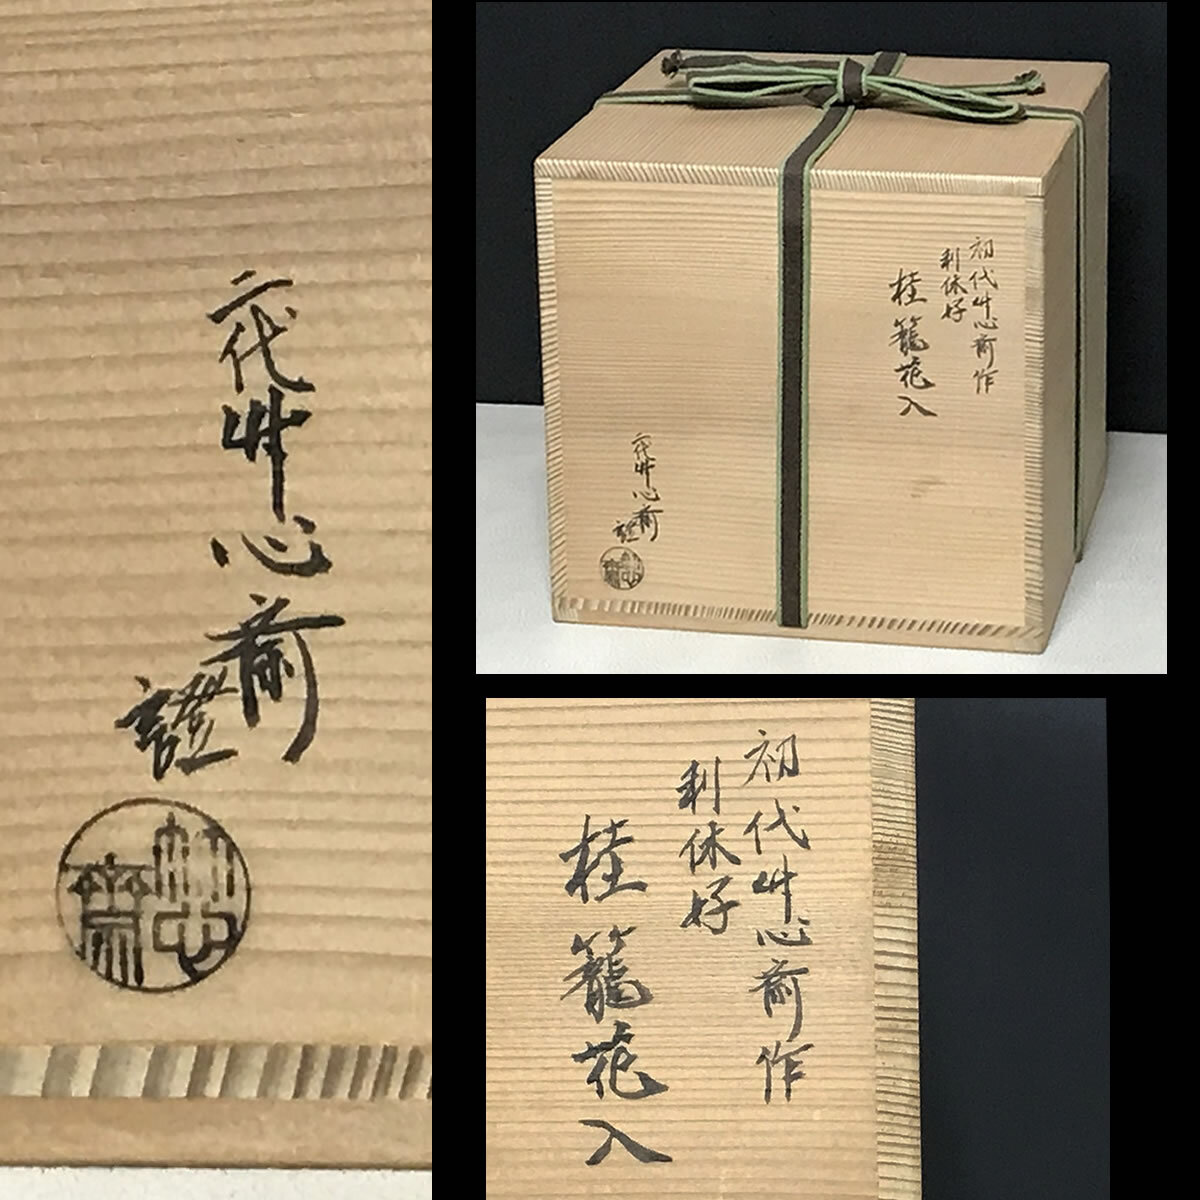 二代竹心斎
證
竹心斎
初代竹心斎作
利休好
桂籠花入
二代竹心斎
證
竹心斎
初代竹心斎作
利休好
桂籠花入